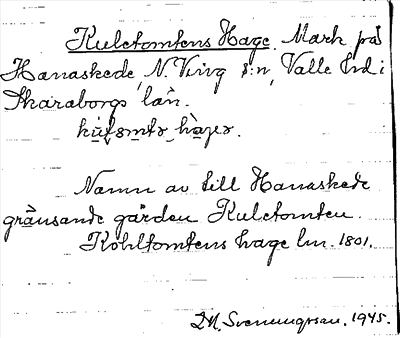 Kuletomtens Hage. Mark på
Hanaskede, N. Ving s:n, Valle hd i
Skaraborgs län.

Namn av till Hanaskede
gränsande gården Kuletomten.
Kohltomtens hage lm. 1801.
Svenungsson. 1945.